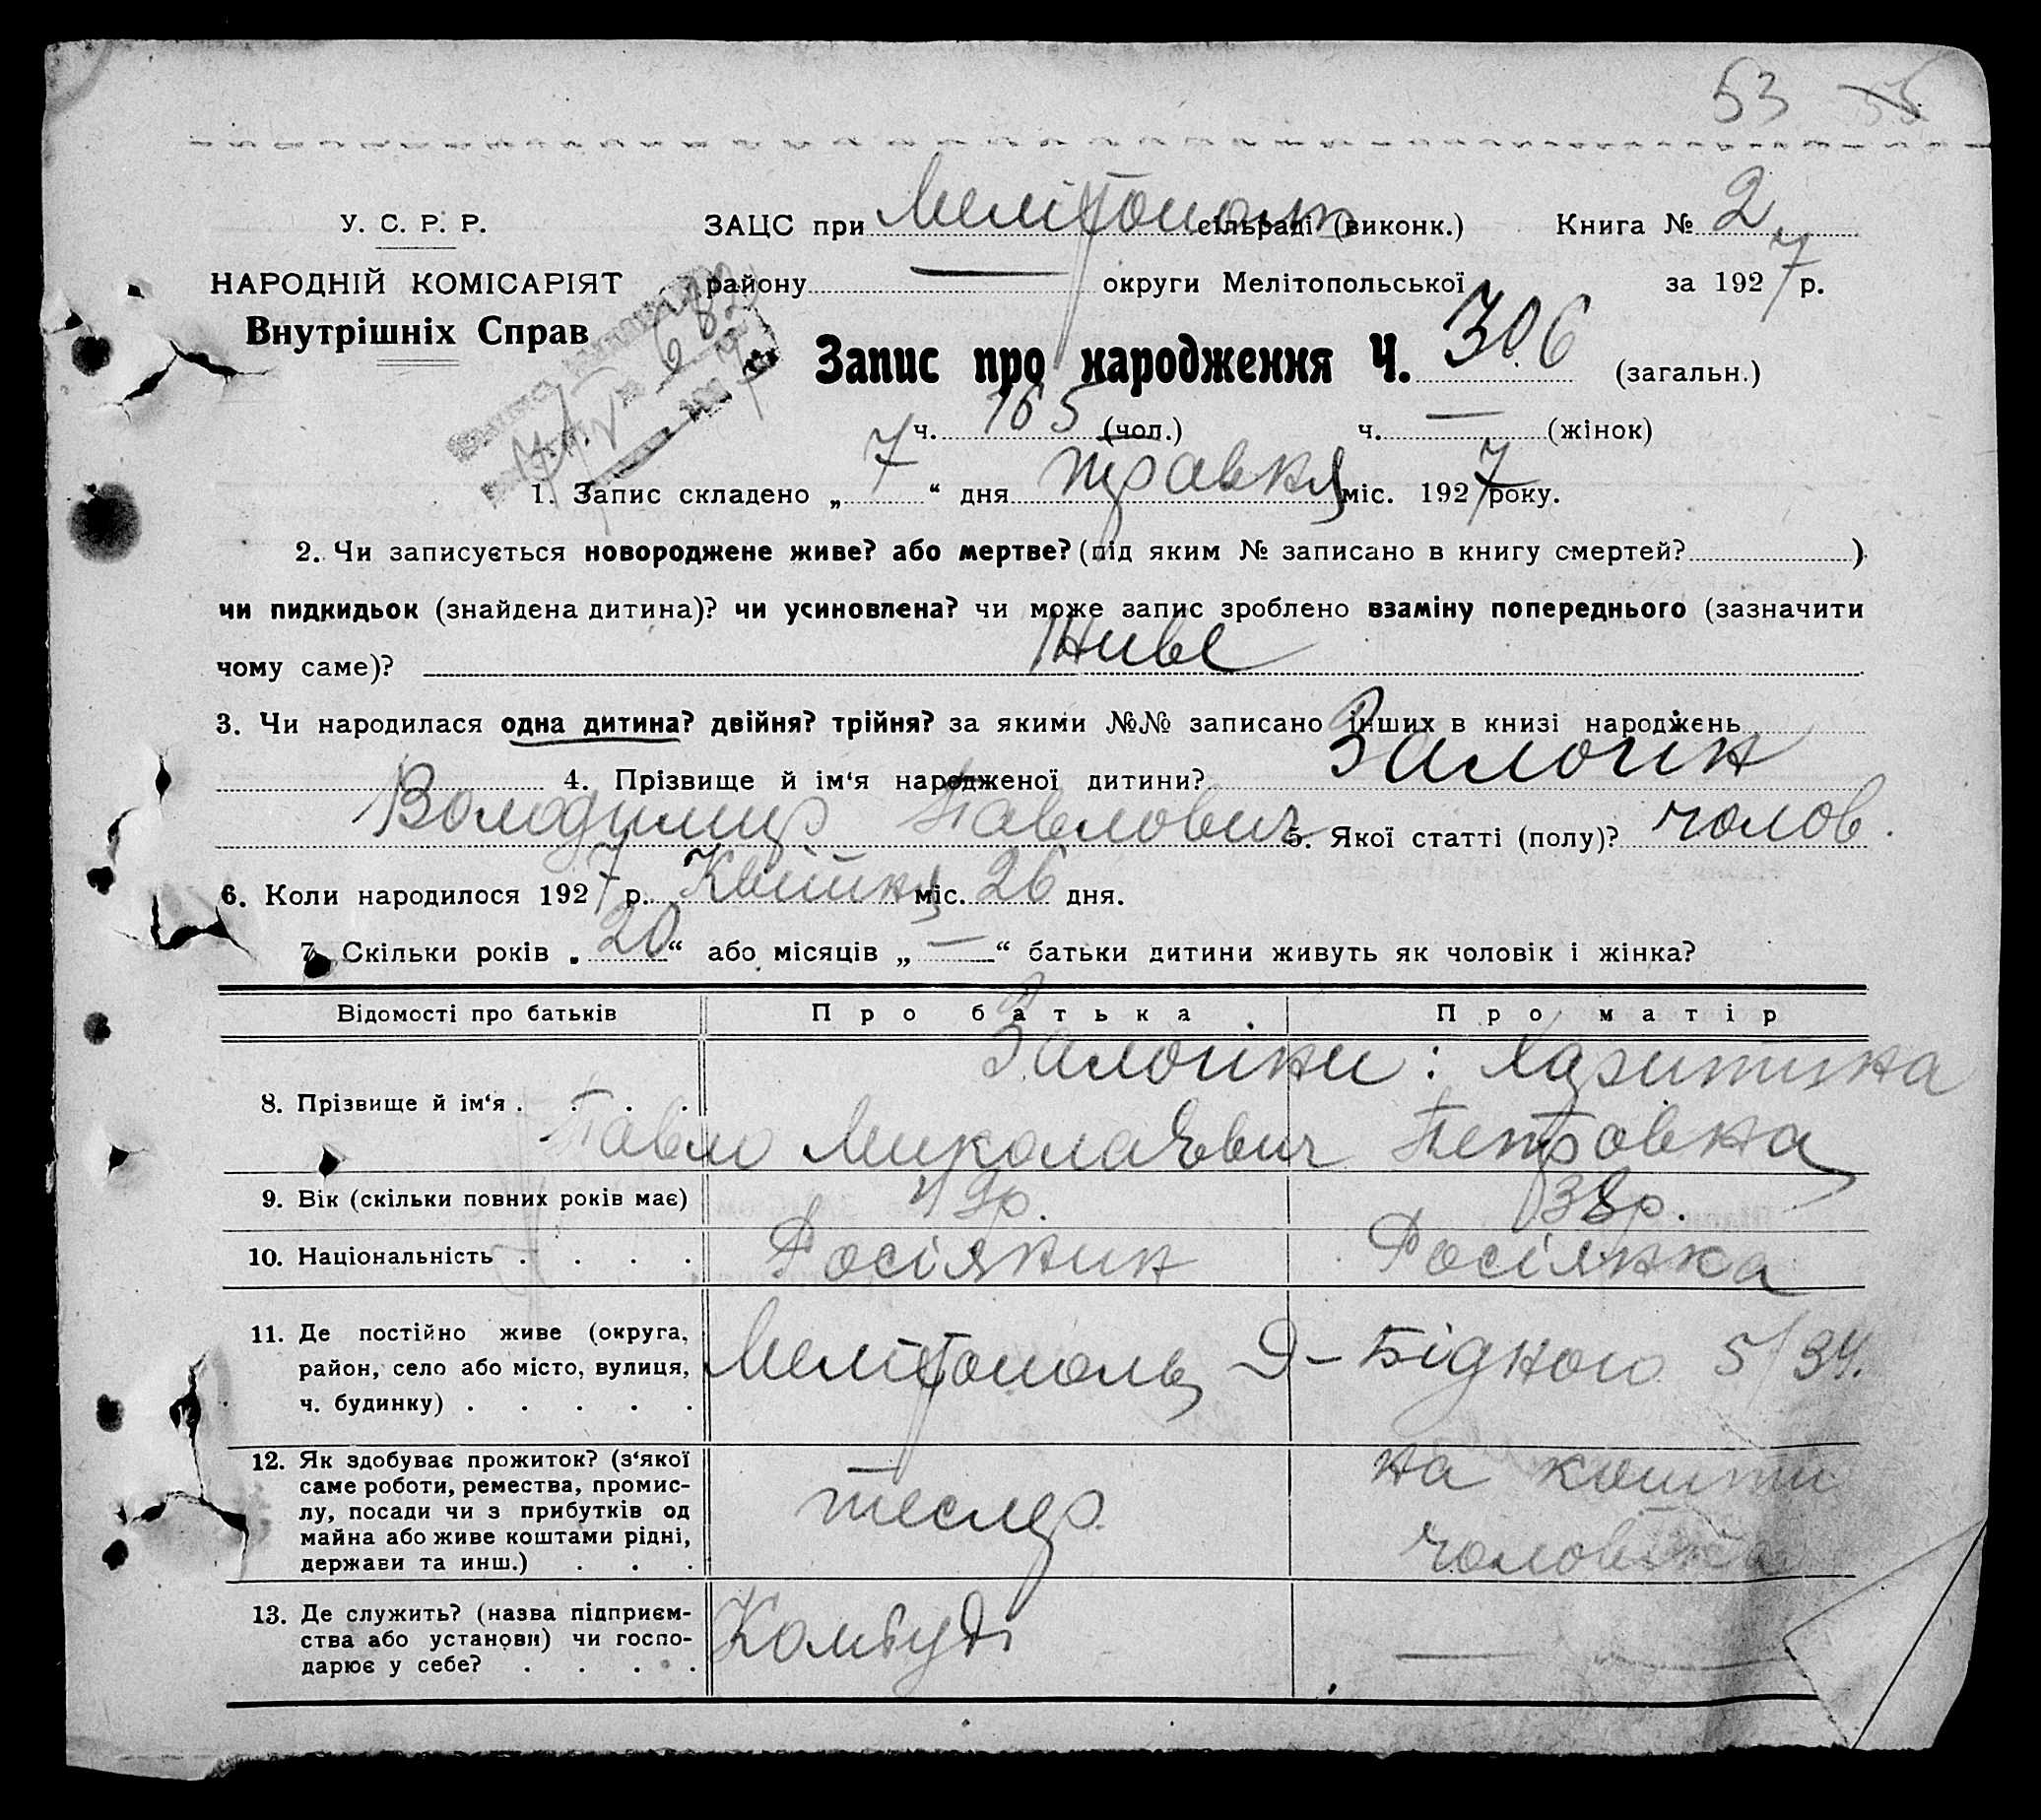 53 55
У. С. Р. Р. ЗАЦС при Мелітополь сільраді (виконк.) Книга № 2
НАРОДНІЙ КОМІСАРІЯТ району — округи Мелітопольської за 1927 р.
Внутрішніх Справ
Запис про народження Ч. 306 (загальн.)
ч. 165 (чол.) ч. — (жінок)
1. Запис складено „ 7 “ дня травня міс. 1927 року.
2. Чи записується новороджене живе? або мертве? (під яким № записано в книгу смертей? )
чи пидкидьок (знайдена дитина)? чи усиновлена? чи може запис зроблено взаміну попереднього (зазначити
чому саме)? Живе
3. Чи народилася одна дитина? двійня? трійня? за якими №№ записано інших в книзі народжень
4. Прізвище й ім‘я народженої дитини?
Володимир Павлович 5. Якої статті (полу)? чолов.
6. Коли народилося 1927 р. Квітня міс. 26 дня.
7. Скільки років „ 20 “ або місяців „ — “ батьки дитини живуть як чоловік і жінка?
Відомості про батьків Про батька Про матір
8. Прізвище й ім‘я . . . . Павло Миколаєвич Петровна
9. Вік (скільки повних років має) 43р. 38р.
10. Національність . . . . Росіянин Росіянка
11. Де постійно живе (округа,
район, село або місто, вулиця, Мелітополь Д-Бідного 5/34.
ч. будинку) . . . . .
12. Як здобуває прожиток? (з‘якої на кошти
саме роботи, ремества, промис-
лу, посади чи з прибутків од тесляр чоловіка
майна або живе коштами рідні,
держави та инш.) . . .
13. Де служить? (назва підприєм-
ства або установи) чи госпо- —
дарює у себе? . . . .